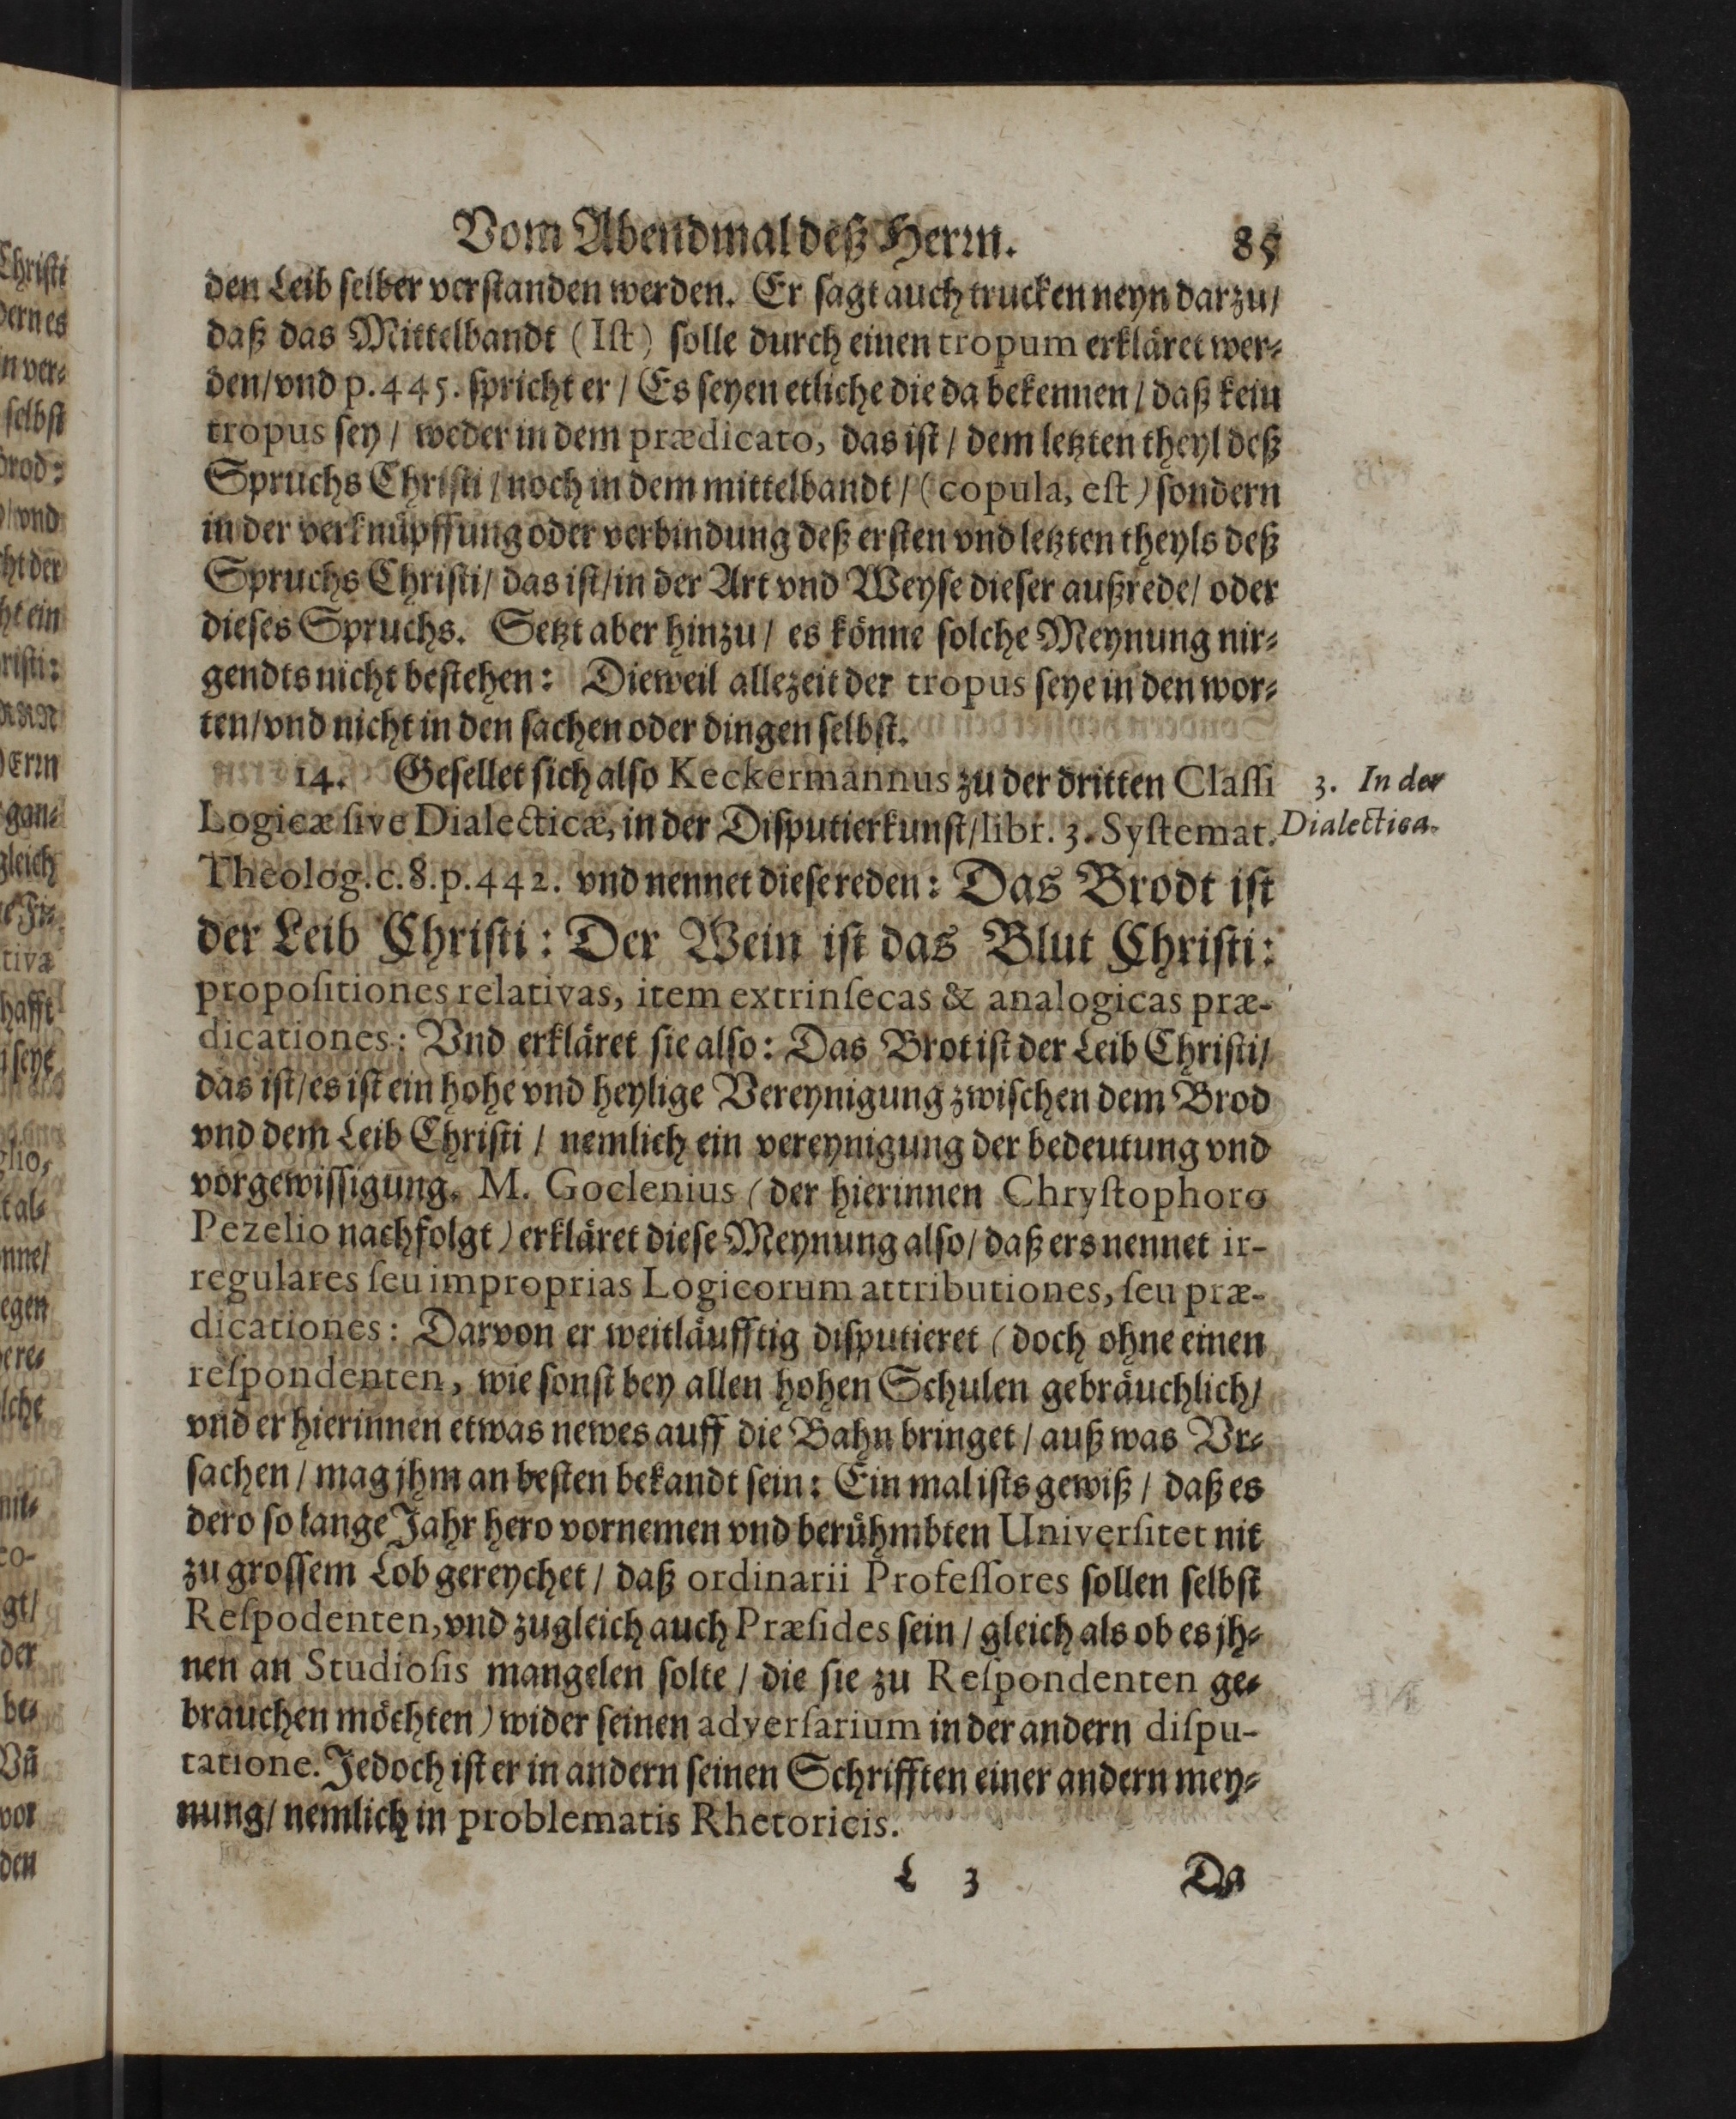 Vom Abendmal deß Herrn. 85
den Leib selber verstanden werden. Er sagt auch trucken neyn darzu/
daß das Mittelbandt (Ist) solle durch einen tropum erkläret wer-
den/vnd p. 445. spricht er / Es seyen etliche die da bekennen / daß kein
tropus sey / weder in dem prædicato, das ist / dem letzten theyl deß
Spruchs Christi / noch in dem mittelbandt / (copula, est) sondern
in der verknüpffung oder verbindung deß ersten vnd letzten theyls deß
Spruchs Christi/ das ist/in der Art vnd Weyse dieser außrede/ oder
dieses Spruchs. Setzt aber hinzu / es könne solche Meynung nir-
gendts nicht bestehen: Dieweil allezeit der tropus seye in den wor-
ten/vnd nicht in den sachen oder dingen selbst.
14. Gesellet sich also Keckermannus zu der dritten Classi
3. In der
Logicæ sive Dialecticæ, in der Disputierkunst/libr. 3. Systemat.
Dialectica.
Theolog. c. 8. p. 442. vnd nennet diese reden: Das Brodt ist
der Leib Christi: Der Wein ist das Blut Christi:
propositiones relativas, item extrinsecas & analogicas præ-
dicationes: Vnd erkläret sie also: Das Brot ist der Leib Christi/
das ist/es ist ein hohe vnd heylige Vereynigung zwischen dem Brod
vnd dem Leib Christi / nemlich ein vereynigung der bedeutung vnd
vorgewissigung. M. Goclenius (der hierinnen Chrystophoro
Pezelio nachfolgt) erkläret diese Meynung also/ daß ers nennet ir-
regulares seu improprias Logicorum attributiones, seu præ-
dicationes: Darvon er weitläufftig disputieret (doch ohne einen
respondenten, wie sonst bey allen hohen Schulen gebräuchlich/
vnd er hierinnen etwas newes auff die Bahn bringet / auß was Vr-
sachen / mag jhm an besten bekandt sein: Ein mal ists gewiß / daß es
dero so lange Jahr hero vornemen vnd berühmbten Universitet nit
zu grossem Lob gereychet / daß ordinarii Professores sollen selbst
Respodenten, vnd zugleich auch Præsides sein / gleich als ob es jh-
nen an Studiosis mangelen solte / die sie zu Respondenten ge-
brauchen möchten) wider seinen adversarium in der andern dispu-
tatione. Jedoch ist er in andern seinen Schrifften einer andern mey-
nung/ nemlich in problematis Rhetoricis.
L 3 Da